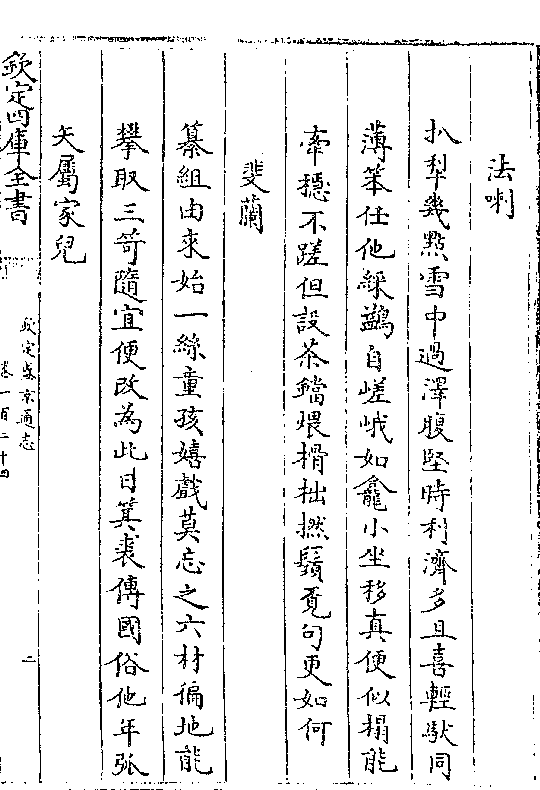 法喇
扒犁幾點雪中過澤腹堅時利濟多且喜輕馱同
薄笨任他綵鷁自嵯峨如龕小坐移真便似榻能
牽穩不蹉但設茶鐺煨榾柮撚鬚覔句更如何
斐蘭
纂組由來始一絲童孩嬉戲莫忘之六材徧地能
攀取三笴隨宜便改為此日箕裘傳國俗他年弧
矢屬家兒
欽定四庫全書
欽定盛京通志
卷一百二十四
二